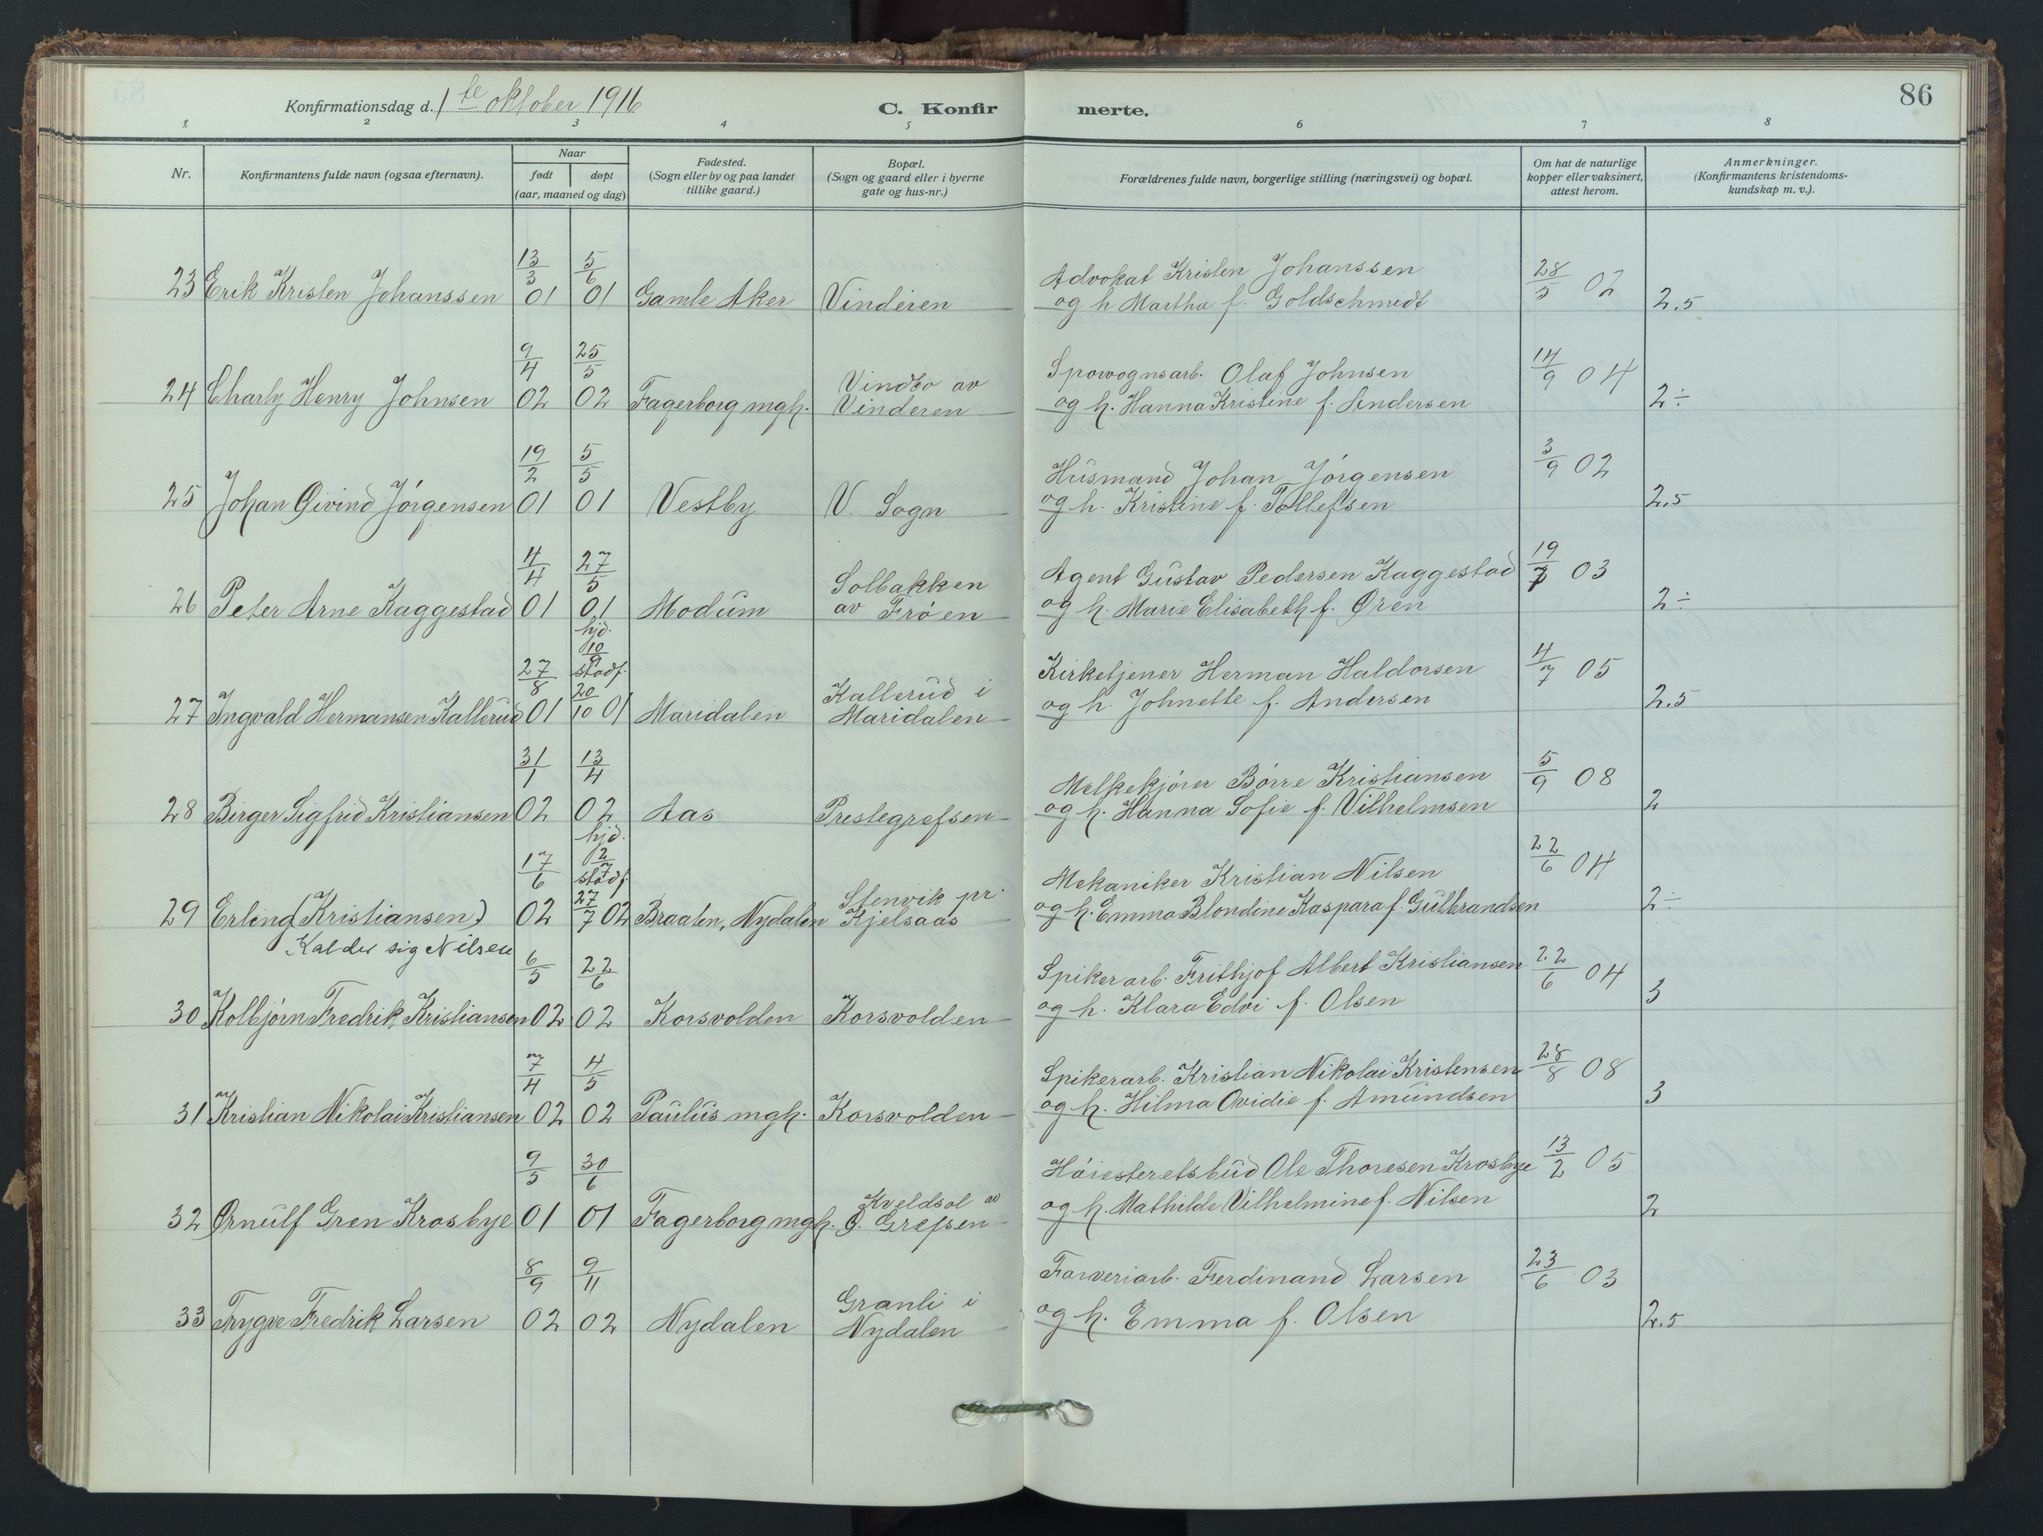 Konfirmationsdag d. 1te oktober 1916
C. Konfir merte.
86
1 2 3 4 5 6 7 8
Nr.
Konfirmantens fulde navn (ogsaa efternavn).
Naar
født døpt
(aar, maaned og dag)
Fødested.
(Sogn eller by og paa landet
tillike gaard.)
Bopæl.
(Sogn og gaard eller i byerne
gate og hus-nr.)
Forældrenes fulde navn, borgerlige stilling (næringsvei) og bopæl.
Om hat de naturlige
kopper eller vaksinert,
attest herom.
Anmerkninger.
(Konfirmantens kristendoms-
kundskap m. v.).
13/3 5/6 Advokat Kristen Johanssen 28/5 02
23 Erik Kristen Johanssen 01 01 Gamle Aker Vinderen og h Martha f. Goldschmidt 2.5
9/4 25/5 Vindbo av Sporvognsarb. Olaf Johnsen 14/9 04
24 Charly Henry Johnsen 02 02 Fagerborg mgh. Vinderen og h. Hanna Kristine f. Andersen 2÷
19/2 5/5 Husmand Johan Jörgensen 3/9 02
25 Johan Øivind Jörgensen 01 01 Vestby V. Sogn og h. Kristine f. Tollefsen 2.5
4/4 27/5 Solbakken Agent Gustav Pedersen Kaggestad 19/7 03
26 Peter Arne Kaggestad 01 01 Modum av Frøen og h. Marie Elisabeth f. Øren 2÷
27/8 hjd. 10/9 stadf. Kallerud i Kirketjener Herman Haldorsen 4/7 05
27 Ingvald Hermansen Kallerud 01 20/10 01 Maridalen Maridalen og h. Johnette f. Andersen 2.5
31/1 13/4 Melkekjörer Börre Kristiansen 5/9 08
28 Birger Sigfrid Kristiansen 02 02 Aas Prestegrefsen og h. Hanna Sofie f. Vilhelmsen 2
17/6 hjd. 2/7 stadf Stenvik pr. Mekaniker Kristian Nilsen 22/6 04
29 Erling (Kristiansen) 02 27/7 02 Braaten, Nydalen Kjelsaas og h. Emma Blondine Kaspara f. Gulbrandsen 2÷
Kalder sig Nilsen
6/5 22/6 Spikerarb. Frithjof Albert Kristiansen 22/6 04
30 Kolbjørn Fredrik Kristiansen 02 02 Korsvolden Korsvolden og h. Klara Edvi f. Olsen 3
7/4 4/5 Spikerarb. Kristian Nikolai Kristensen 28/8 08
31 Kristian Nikolai Kristiansen 02 02 Paulus mgh. Korsvolden og h. Hilma Ovidie f. Amundsen 3
9/5 30/6 Kveldsol av Höiesteretsbud Ole Thoresen Krosbye 13/2 05
32 Ørnulf Gren Krosbye 01 01 Fagerborg mgh. Ø. Grefsen og h. Mathilde Vilhelmine f. Nilsen 2
8/9 9/11 Granli i Farveriarb. Ferdinand Larsen 23/6 03
33 Trygve Fredrik Larsen 02 02 Nydalen Nydalen og h. Emma f. Olsen 2.5